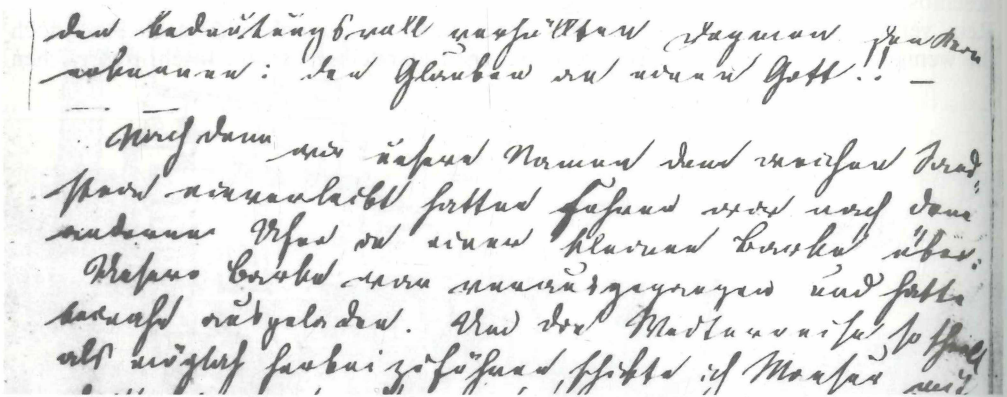 den bedeutungsvoll verhüllten Dogmen den Kern
erkennen: den Glauben an einen Gott!! –
Nachdem wir unsere Namen dem weichen Sand-
stein einverleibt hatten fuhren wir nach dem
anderen Ufer in einer kleinen Barke über.
Unsere Barke war vorausgegangen und hatte
beinahe ausgeladen. Um die Weiterreise so schnell
als möglich herbeizuführen, schickte ich Monsur mit